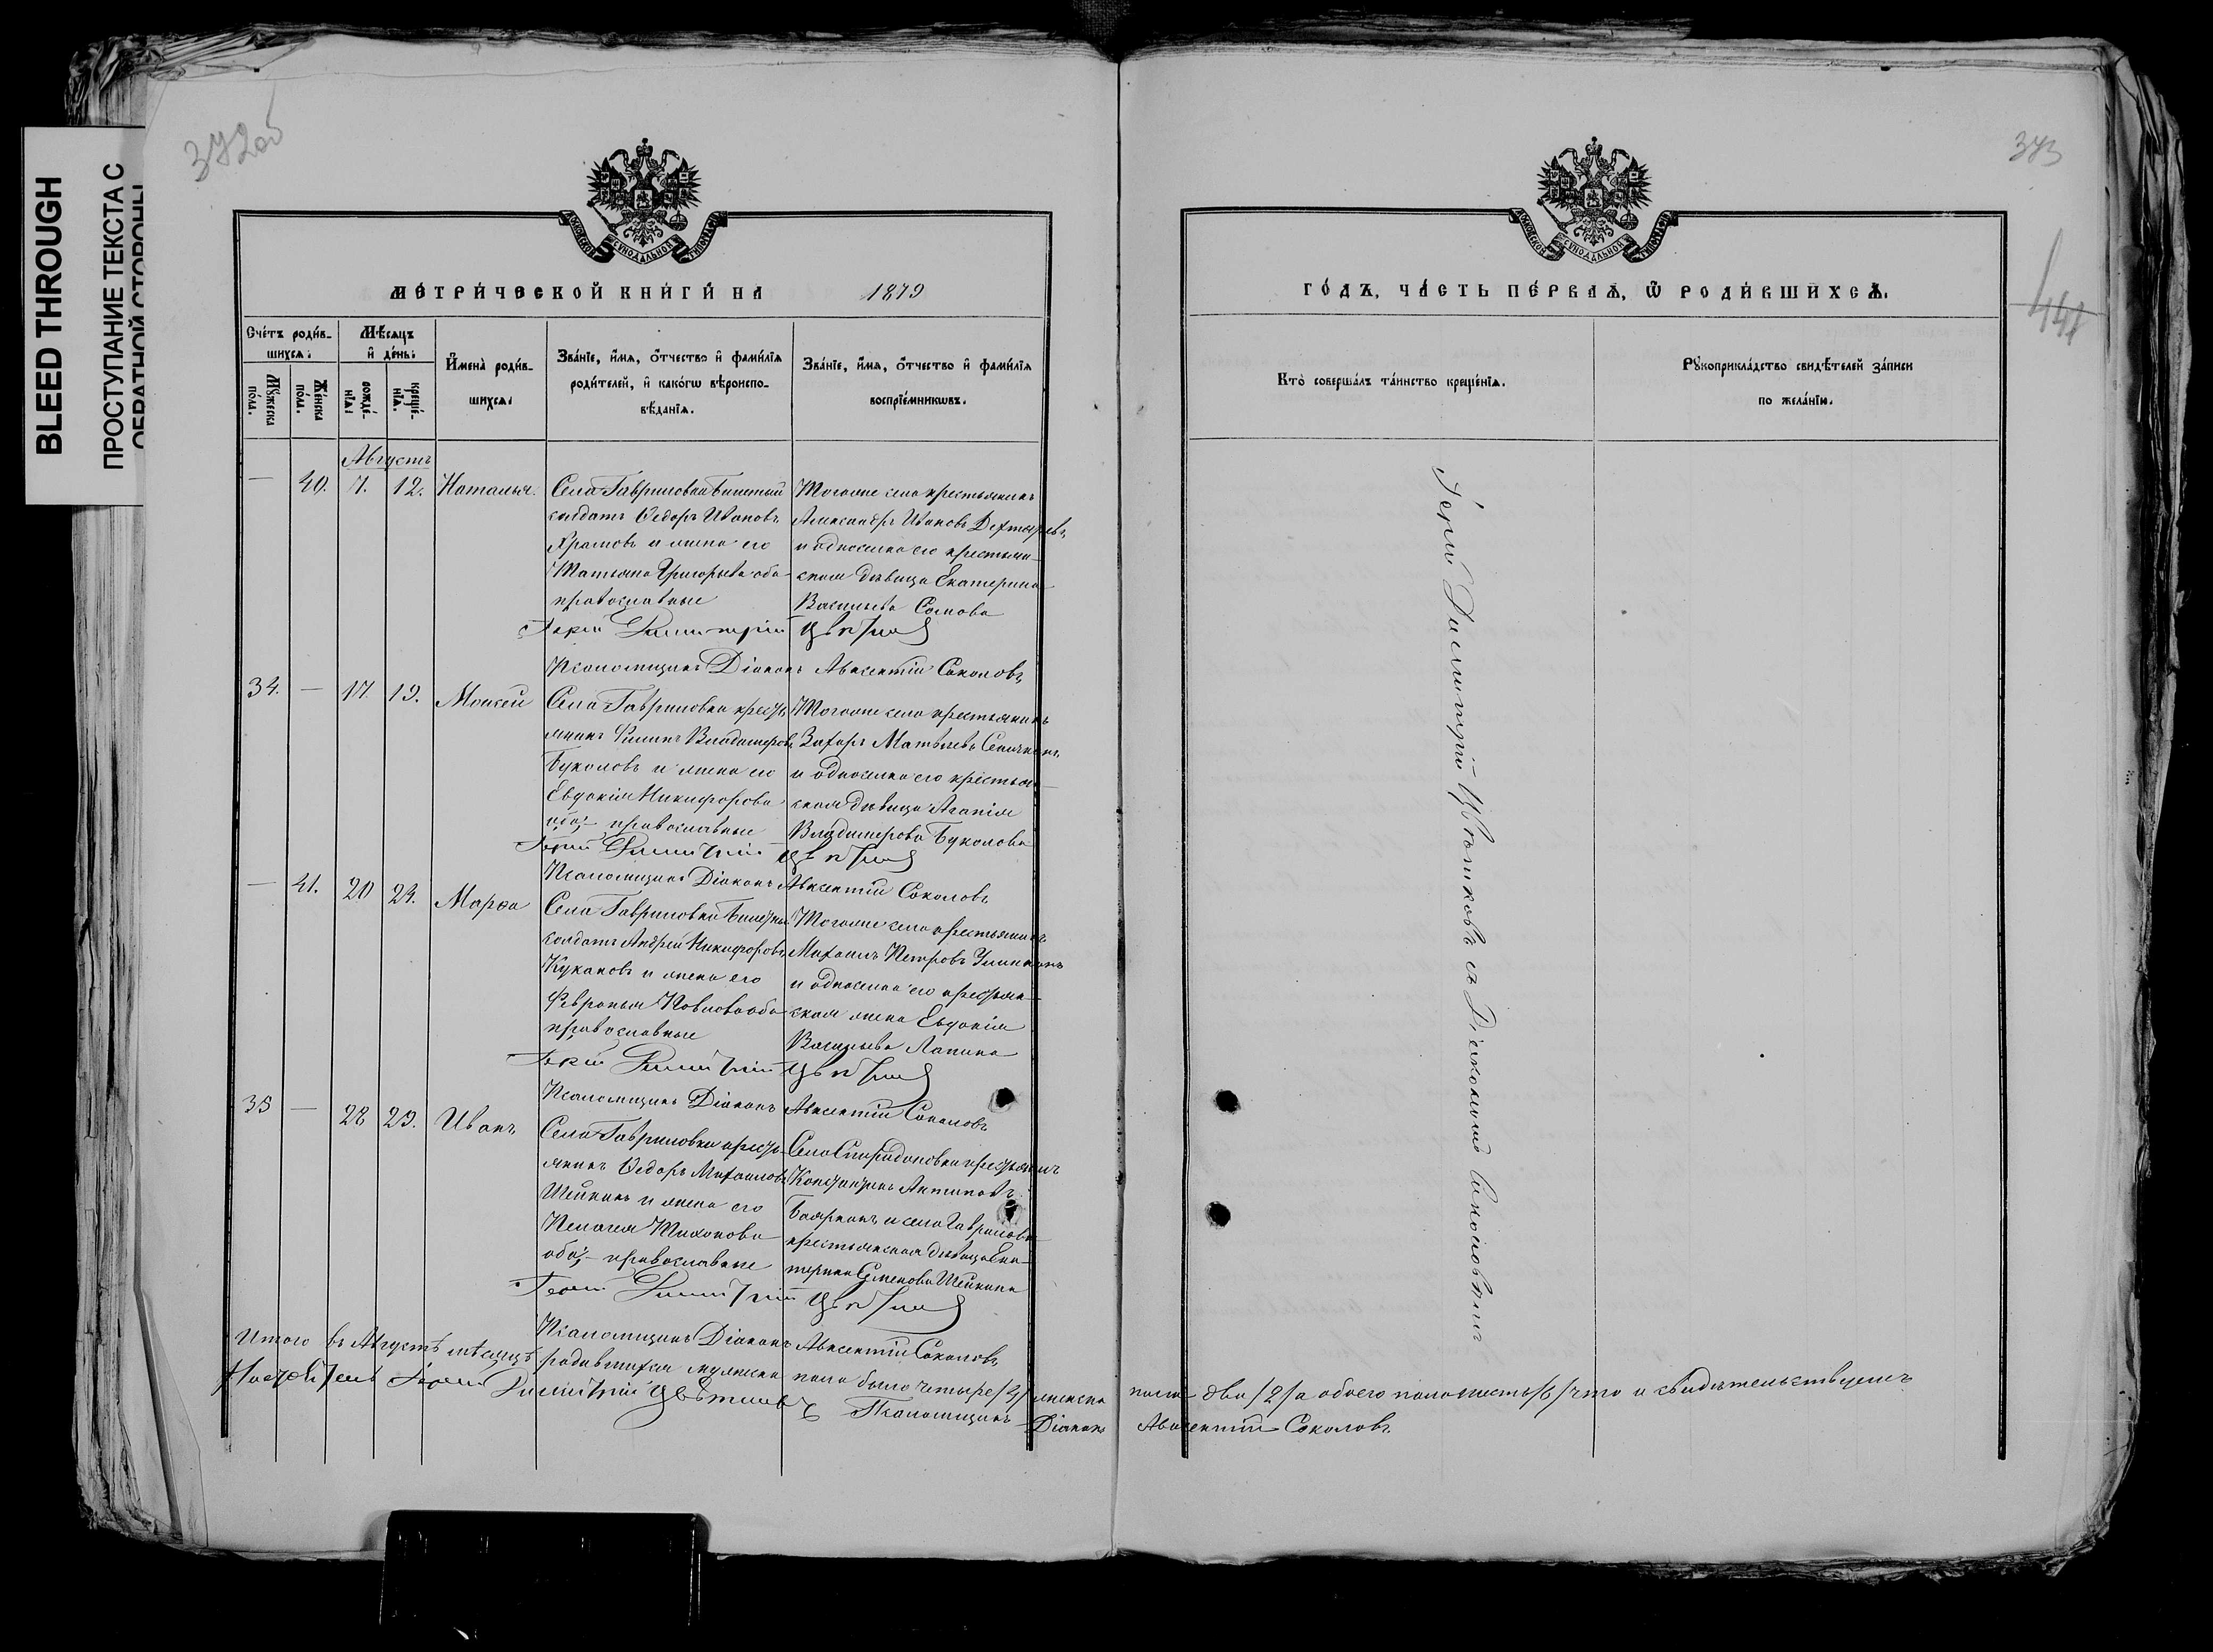 BLEED THROUGH
ПРОСТУПАНИЕ ТЕКСТА С
ОБРАТНОЙ СТОРОНЫ
372об
МОСКОВСКОЙ СѴНОДАЛЬНОЙ ТИПОГРАФІИ
МЕТРИ́ЧЕСКОЙ КНИ́ГИ НА 1879
Сче́тъ роди́в-
шихсѧ:
Мꙋ́жеска
по́ла.
Же́нска
по́ла.
Мѣ́сѧцъ
и҆ де́нь:
рожде́-
нїѧ:
креще́-
нїѧ.
И҆мена̀ роди́в-
шихсѧ:
Зва́нїе, и҆́мѧ, ѻ҆́тчество и҆ фами́лїѧ
роди́телей, и҆ како́гѡ вѣроиспо-
вѣ́данїѧ.
Зва́нїе, и҆́мѧ, ѻ҆́тчество и҆ фами́лїѧ
воспрїе́мникѡвъ.
Августъ
— 40. 7. 12. Наталья.
Села Гавриловки билетный
солдатъ Ѳедоръ Ивановъ
Храмовъ и жена его
Татьяна Григорьева оба
православные
Тогоже села крестьянинъ
Александръ Ивановъ Дехтяревъ,
и односелка его крестьян-
ская дѣвица Екатерина
Васильева Сомова
Іерей Димитрій Цвѣтковъ
Псаломщикъ Діаконъ Авксентій Соколовъ
34. — 17. 19. Моисей
Села Гавриловки кресть-
янинъ Филипъ Владимеровъ
Буколовъ и жена его
Евдокія Никифорова
оба православные
Тогоже села крестьянинъ
Захаръ Матвѣевъ
и односелка его крестьян-
ская дѣвица Агапія
Владимерова Буколова
Іерей Димитрій Цвѣтковъ
Псаломщикъ Діаконъ Авксентій Соколовъ
— 41. 20 24. Марѳа
Села Гавриловки билетный
солдатъ Андрей Никифоровъ
Кукановъ и жена его
Февронья Павлова оба
православные
Тогоже села крестьянинъ
Михаилъ Петровъ
и односелка его крестьян-
ская жена Евдокія
Васильева Лапина
Іерей Димитрій Цвѣтковъ
Псаломщикъ Діаконъ Авксентій Соколовъ
35 — 28 29. Иванъ
Села Гавриловки кресть-
янинъ Ѳедоръ Михаиловъ
Шейкинъ и жена его
Пелагея Тихонова
оба православные
Села Спиридоновки крестьянинъ
Константинъ Антиповъ
Бояркинъ и села Гавриловки
крестьянская дѣвица Ека-
терина Семенова Шейкина
Іерей Димитрій Цвѣтковъ
Псаломщикъ Діаконъ Авксентій Соколовъ
Итого въ Августѣ мѣсяцѣ родившихся мужеска пола было четыре /4/ женска пола два /2/ а обоего пола шесть /6/ что и свидѣтельствуемъ
Настоятель Іерей Димитрій Цвѣтковъ Псаломщикъ Діаконъ Авксентій Соколовъ
373
МОСКОВСКОЙ СѴНОДАЛЬНОЙ ТИПОГРАФІИ
ГО́ДЪ, ЧА́СТЬ ПЕ́РВАѦ, Ѡ҆ РОДИ́ВШИХСѦ.
Кто̀ соверша́лъ та́инство креще́нїѧ.
Рꙋкоприкла́дство свидѣ́телей за́писи
по жела́нїю.
Іерей Димитрій Цвѣтковъ съ Діакономъ Соколовымъ